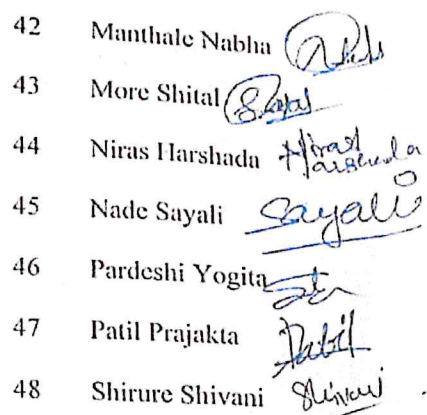 42 Manthale Nabha
43 More Shital
44 Niras Harshada Niras Harshada
45 Nade Sayali Sayali
46 Pardeshi Yogita
47 Patil Prajakta Patil
48 Shirure Shivani Shivani